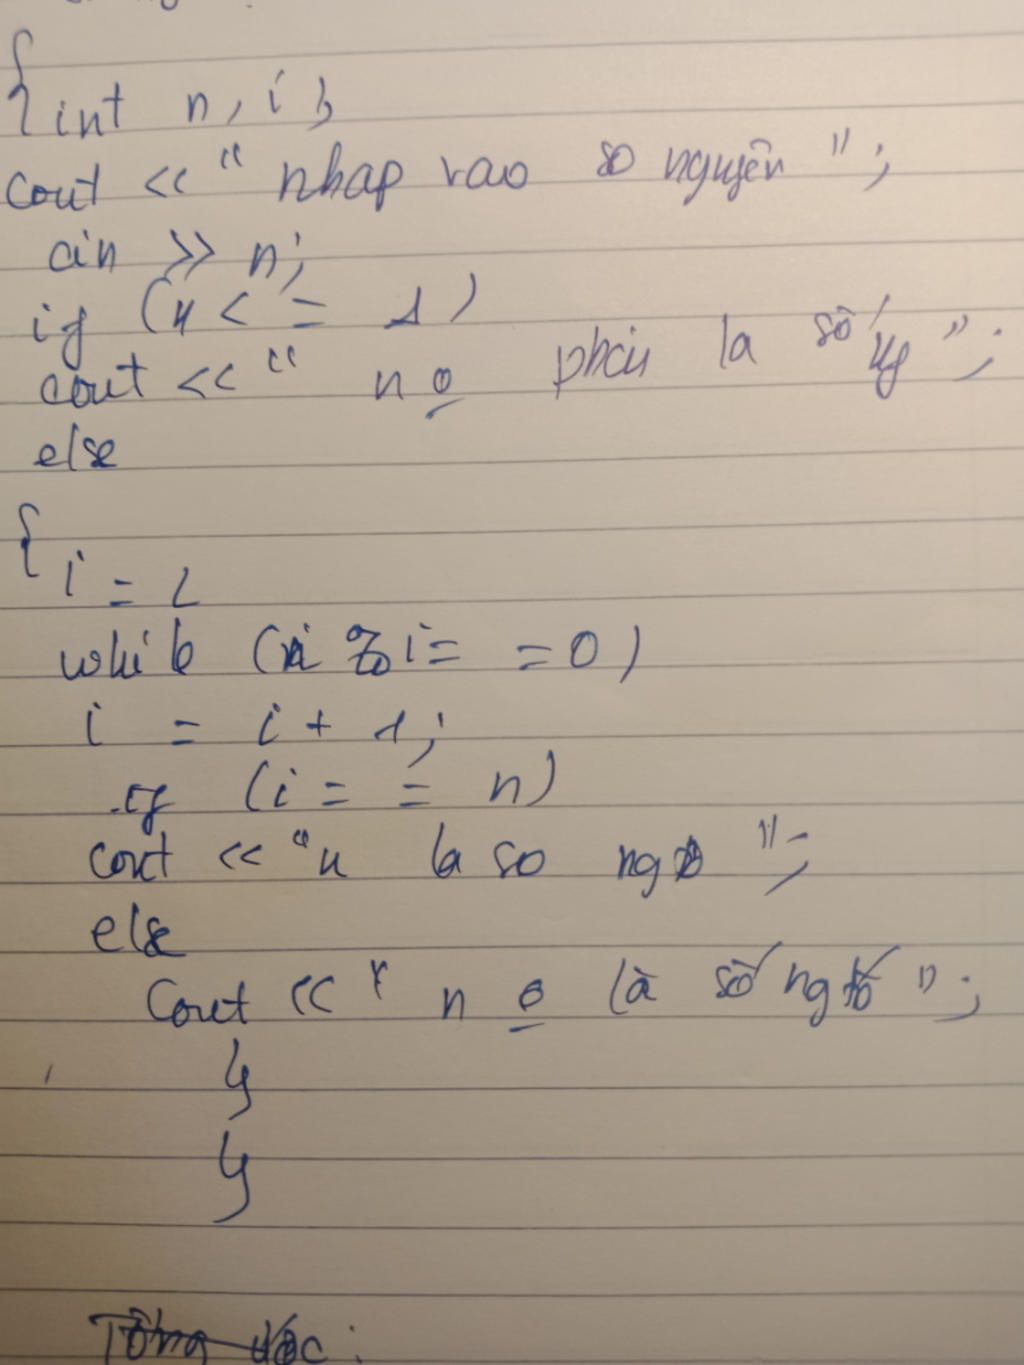 { int n, i;
cout << " nhap vao so nguyên ";
cin >> n;
if (n < = 1)
cout << " n o phải la số ";
else
{ i = 2
while (n % i = = 0)
i = i + 1;
if (i = = n)
cout << "n la so ng ";
else
Cout << " n o là số ng tố ";
}
}